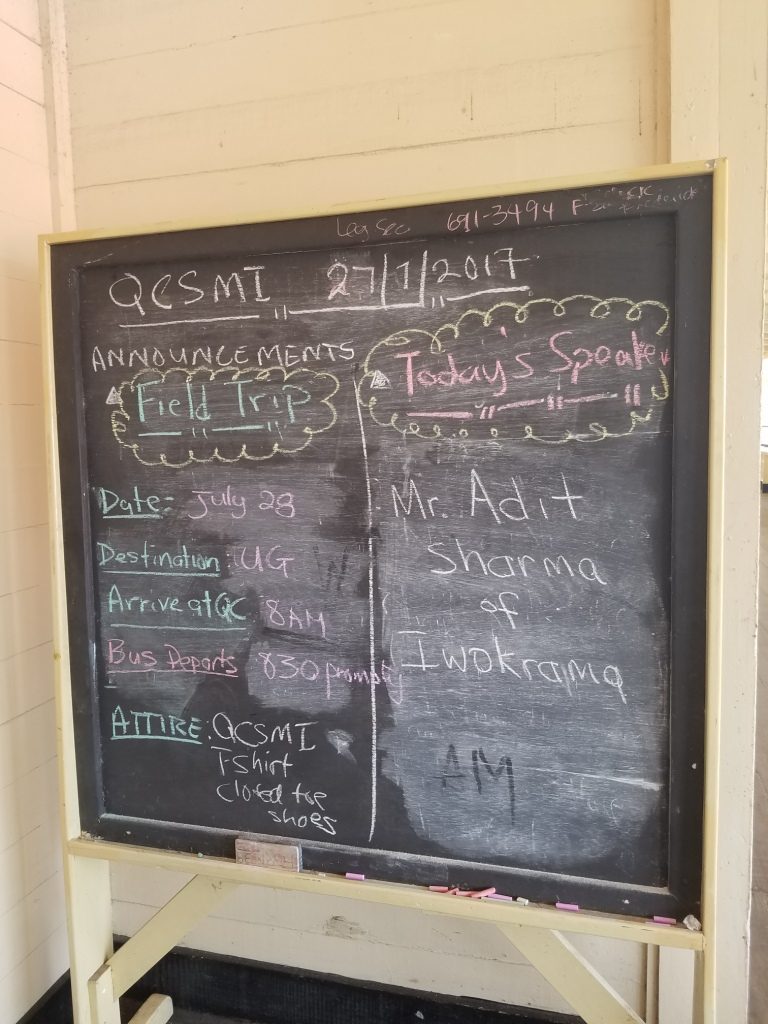 Leg Sec 691-3494 F
QCSMI 27/7/2017
ANNOUNCEMENTS
Field Trip
Date:- July 28
Destination: UG
Arrive at QC 8AM
Bus Departs 830 promptly
ATTIRE: QCSMI
T-Shirt
closed toe
shoes
Today's Speaker
Mr. Adit
Sharma
of
Iwokrama
AM